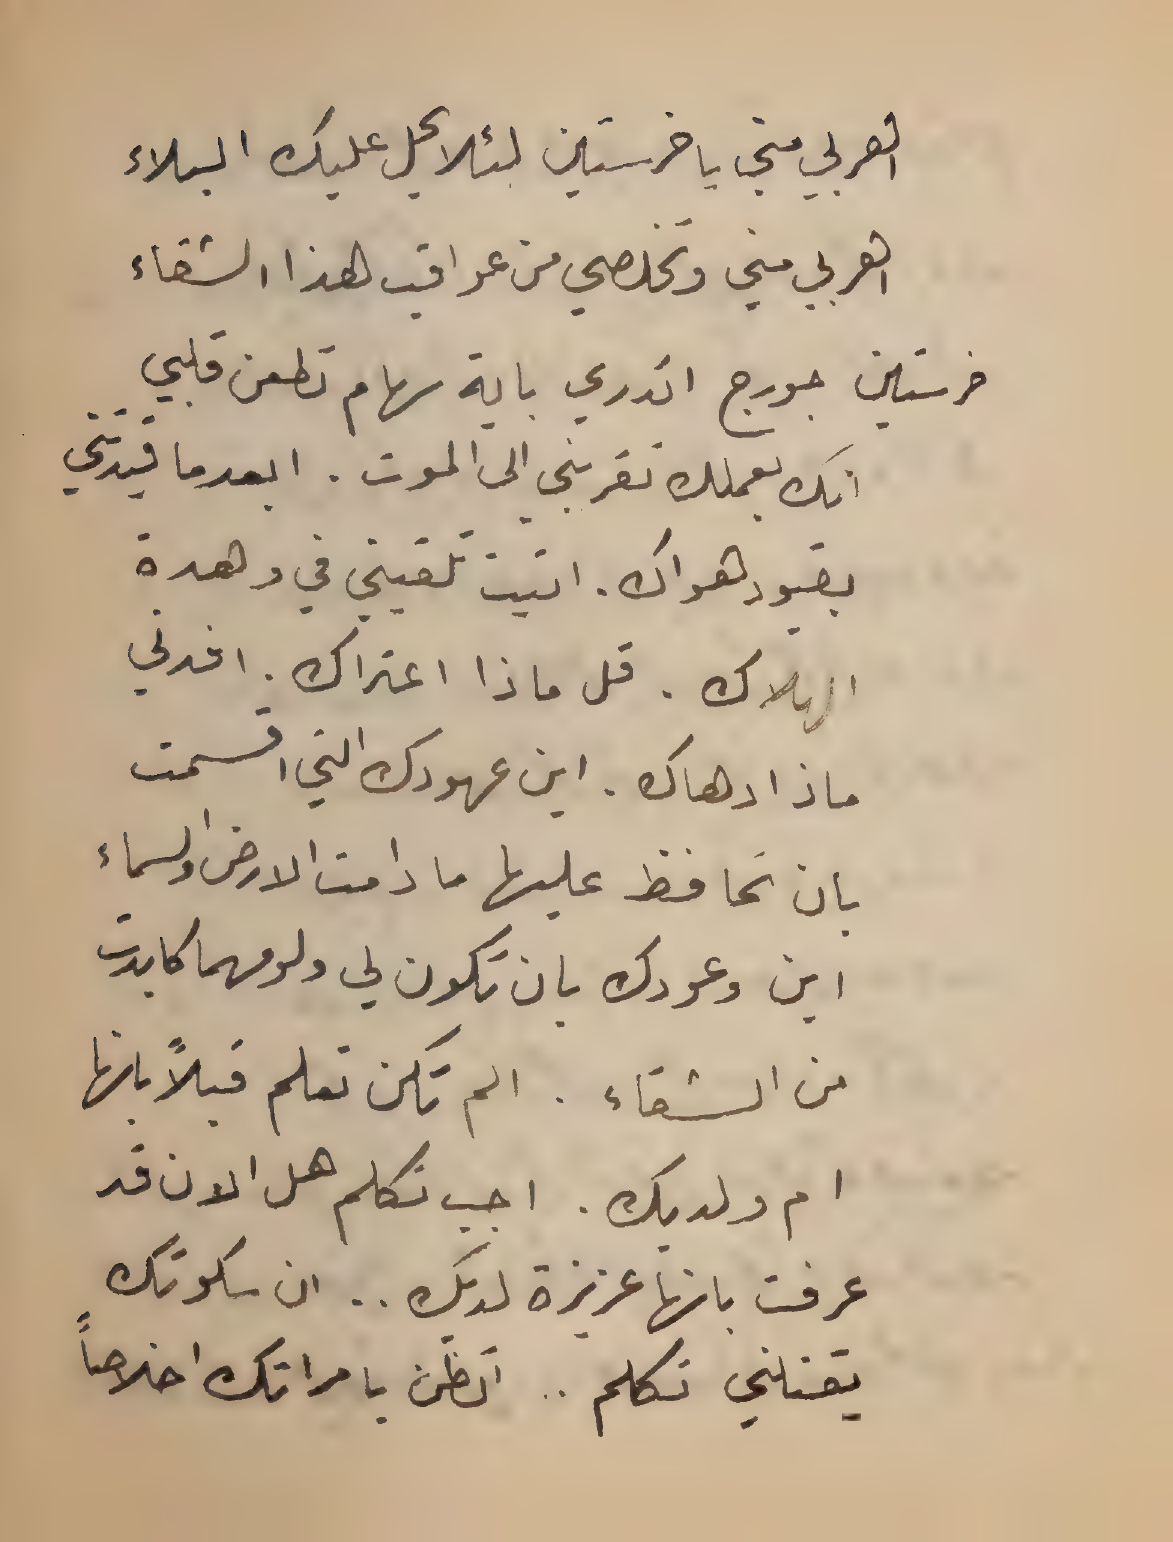 اهربي مني يا خرستين لئلا يحل عليك البلاء
اهربي مني وتخلصي من عواقب هذا الشقاء
خرستين جورج اتدري باية سهام تطعن قلبي
انك بعملك تقربني الى الموت . ابعدما قيدتني
بقيود هواك . اتيت تلقيني في وهدة
الهلاك . قل ماذا اعتراك . افدني
ماذا دهاك . اين عهودك التي اقسمت
بان تحافظ عليها ما دامت الارض والسماء
اين وعودك بان تكون لي ولو مهما كابدت
من الشقاء . الم تكن تعلم قبلاً بانها
ام ولديك . اجب تكلم هل الان قد
عرفت بانها عزيزة لديك .. ان سكوتك
يقتلني تكلم .. اتظن بامراتك اخلاصاً